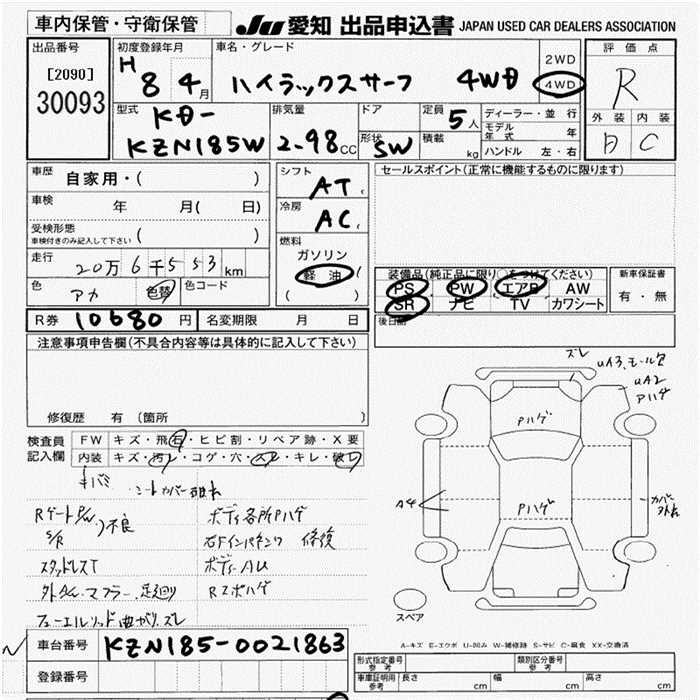 車内保管・守衛保管
JU 愛知 出品申込書 JAPAN USED CAR DEALERS ASSOCIATION
出品番号
[2090]
30093
初度登録年月
H 8年 4月
車名・グレード
ハイラックスサーフ 4WD
2WD
4WD
評価点
R
外装 内装
D C
型式
KD-
KZN185W
排気量
2.98CC
ドア
形状
SW
定員
5人
積載
kg
ディーラー・並行
モデル年式 年
ハンドル 左・右
車歴
自家用・( )
車検
年 月( 日)
受検形態
車検付きのみ記入して下さい ( )
走行
20万6千553km
色
アカ 色替
色コード
シフト
AT
冷房
AC
燃料
ガソリン
軽油
( )
セールスポイント(正常に機能するものに限ります)
装備品(純正品に限り○をつけてください)
PS PW エアB AW
SR ナビ TV カワシート
新車保証書
有・無
R券 10680円
名変期限 月 日
後日
注意事項申告欄(不具合内容等は具体的に記入して下さい)
修復歴 有(箇所 )
検査員
記入欄
FW キズ・飛石・ヒビ割・リペア跡・X要
内装 キズ・汚レ・コゲ・穴・スレ・キレ・破レ
キバミ
シートカバー
RゲートP/W
S/R
不良
スタッドレスT
外タイル、マフラー、足廻り
フューエルリッド曲がりズレ
ボディ各所Pハゲ
右Fインパネウク 修復
ボディAU
Rズボハゲ
ズレ
UA3、モール欠
UA2
アハゲ
Pハゲ
Pハゲ
A4
カバー
外れ
スペア
A-キズ E-エクボ U-凹み W-補修跡 S-サビ C-腐食 XX-交換済
車台番号
KZN185-0021863
登録番号
形式指定番号
参考
類別区分番号
参考
車庫証明用
参考
長さ cm
幅 cm
高さ cm